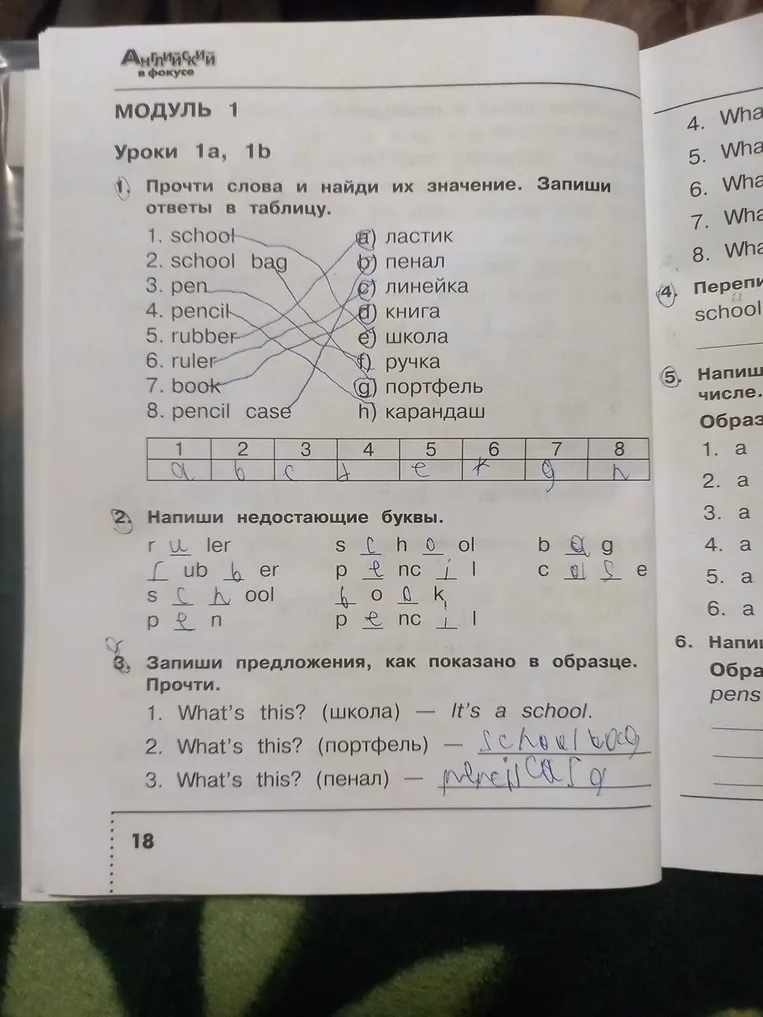 Английский
в фокусе
МОДУЛЬ 1
Уроки 1a, 1b
1. Прочти слова и найди их значение. Запиши
ответы в таблицу.
1. school a) ластик
2. school bag b) пенал
3. pen c) линейка
4. pencil d) книга
5. rubber e) школа
6. ruler f) ручка
7. book g) портфель
8. pencil case h) карандаш
1 2 3 4 5 6 7 8
a b c d e f g h
2. Напиши недостающие буквы.
r u ler s c h o ol b a g
r ub b er p e nc i l c a s e
s c h ool b o o k
p e n p e nc i l
3. Запиши предложения, как показано в образце.
Прочти.
1. What's this? (школа) — It's a school.
2. What's this? (портфель) — school bag
3. What's this? (пенал) — pencil case
18
4. Wha
5. Wha
6. Wha
7. Wha
8. Wha
4. Перепи
school
5. Напиш
числе.
Образ
1. a
2. a
3. a
4. a
5. a
6. a
6. Напи
Обра
pens